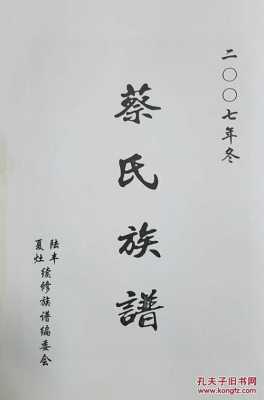 二〇〇七年冬
蔡氏族譜
陆丰
夏灶 续修族谱编委会
孔夫子旧书网
www.kongfz.com